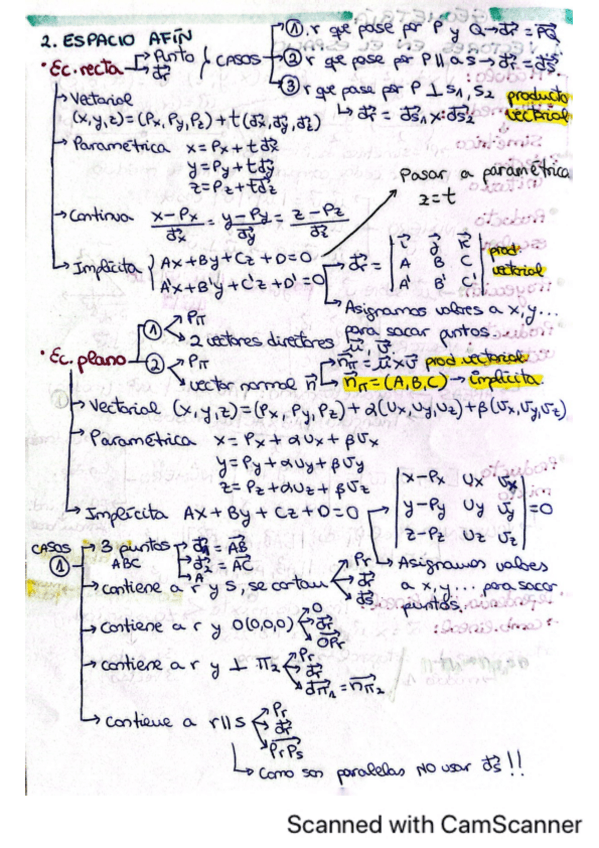 2. ESPACIO AFÍN
• Ec. recta → Punto
→ d⃗r
CASOS
① r que pase por P y Q → d⃗r = P⃗Q
② r que pase por P ∥ a S → d⃗r = d⃗s
③ r que pase por P ⊥ S1, S2
↳ d⃗r = d⃗s1 x d⃗s2
producto vectorial
→ Vectorial
(x,y,z)=(Px,Py,Pz)+t(d⃗x,d⃗y,d⃗z)
→ Paramétrica x=Px+td⃗x
y=Py+td⃗y
z=Pz+td⃗z
Pasar a paramétrica
z=t
→ Continua x-Px/d⃗x = y-Py/d⃗y = z-Pz/d⃗z
→ Implícita { Ax+By+Cz+D=0
A'x+B'y+C'z+D'=0
→ d⃗r = | i⃗ j⃗ k⃗ |
| A B C |
| A' B' C' |
prod. vectorial
→ Asignamos valores a x,y...
para sacar puntos
• Ec. plano
① → Pπ
→ 2 vectores directores u⃗, v⃗
② → Pπ
→ vector normal n⃗
→ n⃗π = u⃗ x v⃗ prod vectorial
→ n⃗π = (A,B,C) → implícita
→ Vectorial (x,y,z)=(Px,Py,Pz)+α(Ux,Uy,Uz)+β(Vx,Vy,Vz)
→ Paramétrica x=Px+αUx+βVx
y=Py+αUy+βVy
z=Pz+αUz+βVz
→ Implícita Ax+By+Cz+D=0
| x-Px Ux Vx |
| y-Py Uy Vy | =0
| z-Pz Uz Vz |
→ Asignamos valores
a x,y... para sacar
puntos.
CASOS
①
→ 3 puntos ABC
→ d⃗1 = A⃗B
→ d⃗2 = A⃗C
→ A
→ contiene a r y s, se cortan
→ Pr
→ d⃗r
→ d⃗s
→ contiene a r y O(0,0,0)
→ O
→ d⃗r
→ O⃗Pr
→ contiene a r y ⊥ π2
→ Pr
→ d⃗r
→ d⃗π1 = n⃗π2
→ contiene a r∥s
→ Pr
→ d⃗r
→ P⃗rPs
↳ Como son paralelas NO usar d⃗s!!
Scanned with CamScanner